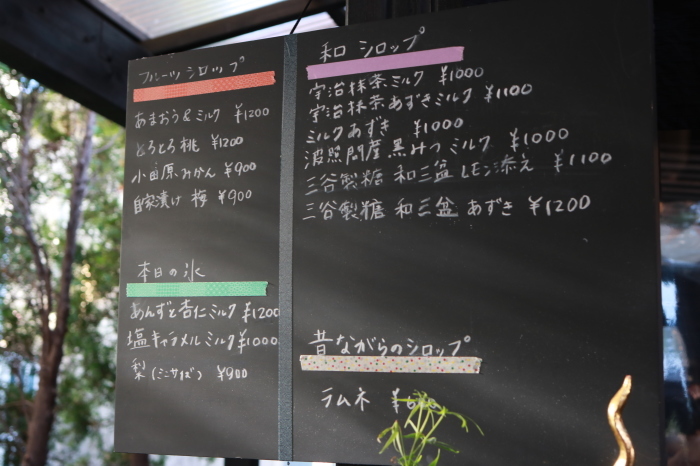 フルーツシロップ
あまおう&ミルク ¥1200
とろとろ桃 ¥1200
小田原みかん ¥900
自家漬け 梅 ¥900
本日の氷
あんずと杏仁ミルク ¥1200
塩キャラメルミルク ¥1000
梨(ミニサイズ) ¥900
和シロップ
宇治抹茶ミルク ¥1000
宇治抹茶あずきミルク ¥1100
ミルクあずき ¥1000
波照間産黒みつミルク ¥1000
三谷製糖 和三盆 レモン添え ¥1100
三谷製糖 和三盆 あずき ¥1200
昔ながらのシロップ
ラムネ